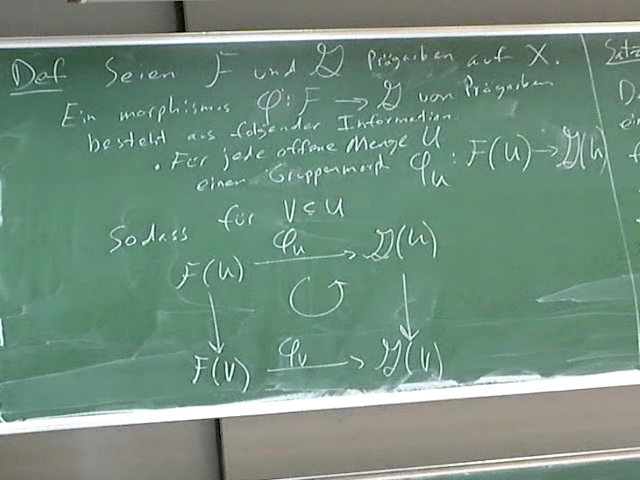 Def Seien F und G Prägarben auf X.
Ein morphismus φ: F → G von Prägarben
besteht aus folgender Information
• Für jede offene Menge U
einen Gruppenmorph φ_U : F(U) → G(U)
Sodass für V ⊆ U
F(U) φ_U → G(U)
↓ ↺ ↓
F(V) φ_V → G(V)
Satz